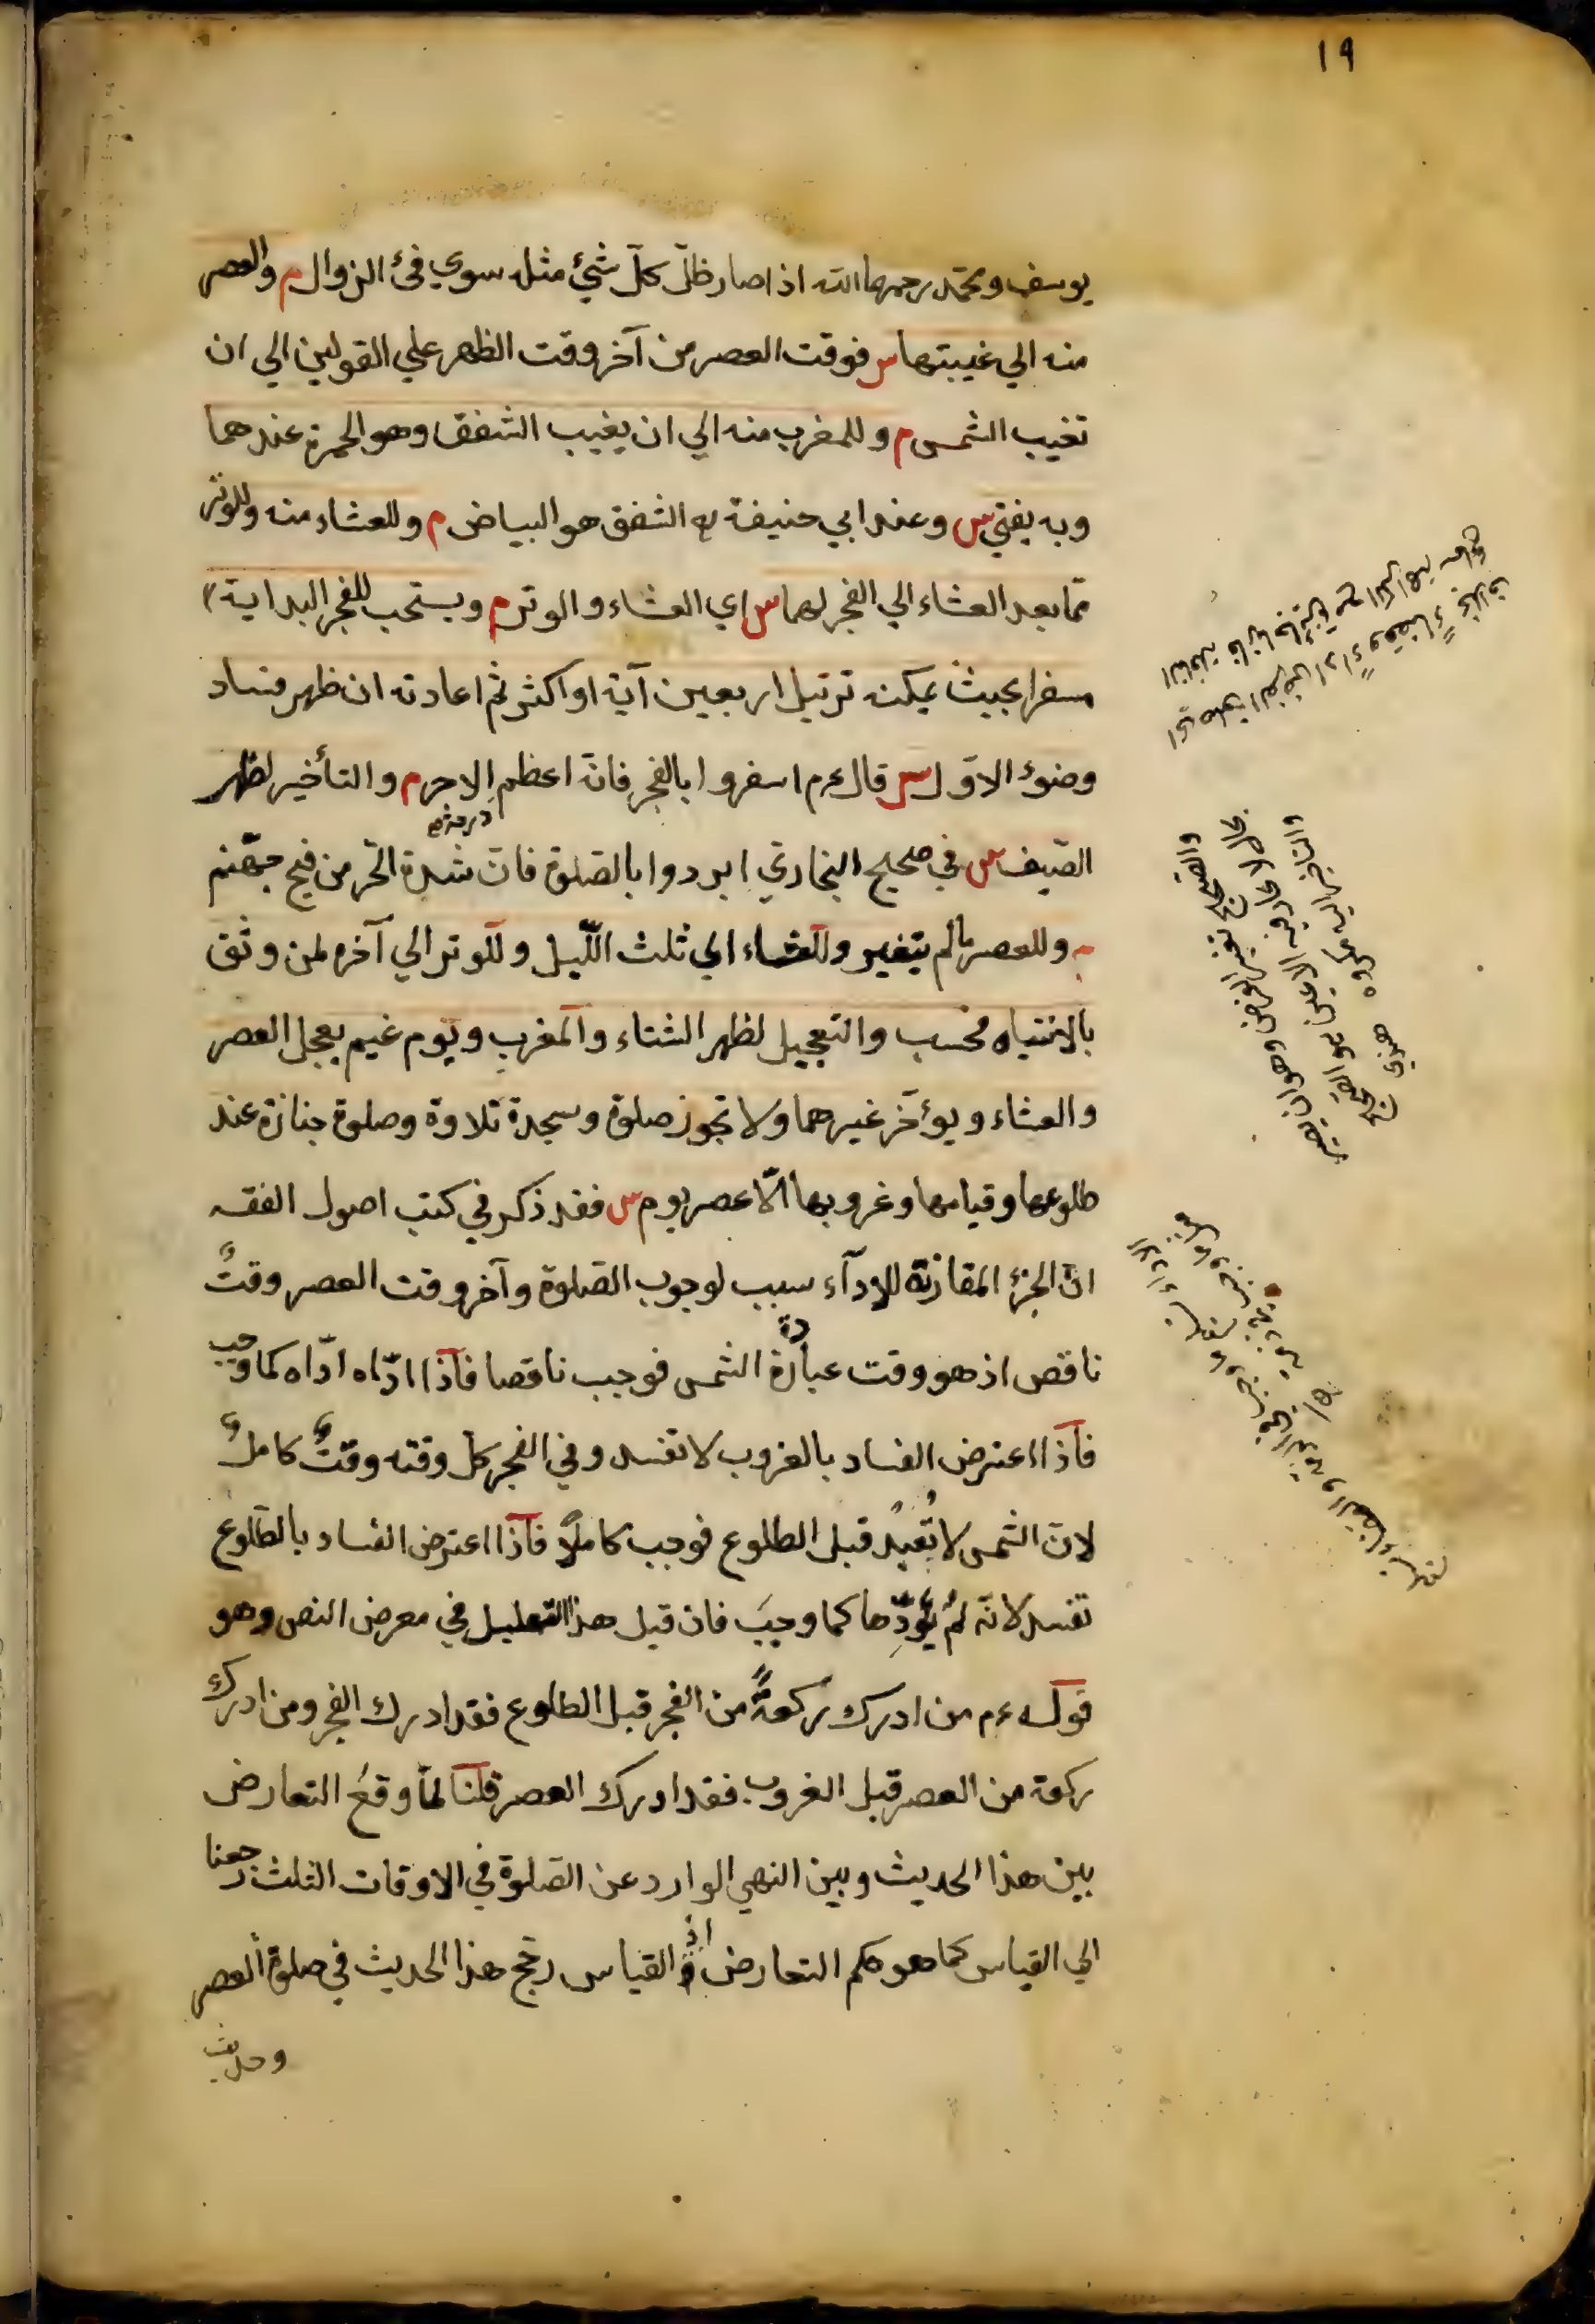 ١٩
يوسف ومحمّد رحمهما الله اذا صار ظلّ كلّ شيئ مثله سوي فئ الزوال م والعصر
منه الي غيبتها س فوقت العصر من آخر وقت الظهر علي القولين الي ان
تغيب الشمس م وللمغرب منه الي ان يغيب الشفق وهو الحمرة عندهما
وبه يفتي س وعند ابي حنيفة رح الشفق هو البياض م وللعشاء منه وللوتر
ممّا بعد العشاء الي الفجر لهما س اي العشاء والوتر م ويستحب للفجر البداية
مسفرا بحيث يمكنه ترتيل اربعين آية او اكثر ثم اعادته ان ظهر فساد
وضوء الاوّل س قال عم اسفروا بالفجر فانّه اعظم الاجر م والتأخير لظهر
الصّيف س في صحيح البخاري ابردوا بالصّلوة فانّ شدة الحّر من فيح جهّنم
وللعصر مالم يتغير وللعشاء الي ثلث اللّيل وللوتر الي آخره لمن وثق
بالانتباه فحسب والتعجيل لظهر الشتاء والمغرب ويوم غيم يعجل العصر
والعشاء ويؤخّر غيرهما ولا تجوز صلوة وسجدة تلاوة وصلوة جنازة عند
طلوعها وقيامها وغروبها الّا عصر يوم س فقد ذكر في كتب اصول الفقه
انّ الجزء المقارنة للادآء سبب لوجوب الصّلوة وآخر وقت العصر وقتٌ
ناقص اذ هو وقت عبادة الشمس فوجب ناقصا فاذا ادّاه ادّاه كما وجب
فاذا اعترض الفساد بالغروب لا تفسد وفي الفجر كلّ وقته وقتٌ كاملٌ
لانّ الشمس لا تُعبدُ قبل الطلوع فوجب كاملًا فاذا اعترض الفساد بالطّلوع
تفسد لانّه لم يؤدّها كما وجبَ فان قيل هذا التعليل في معرض النص وهو
قوله عم من ادرك ركعةً من الفجر قبل الطلوع فقد ادرك الفجر ومن ادرك
ركعة من العصر قبل الغروب فقد ادرك العصر قلنا لمّا وقعَ التعارض
بين هذا الحديث وبين النهي الوارد عن الصّلوة في الاوقات الثلث رجعنا
الي القياس كما هو حكم التعارض اذ القياس رجّح هذا الحديث في صلوة العصر
وحديث
والصّحيح تغير القرص وهو ان يصير
بحال لا تحار فيه الاعين هو الصحيح
والتأخير اليه مكروه